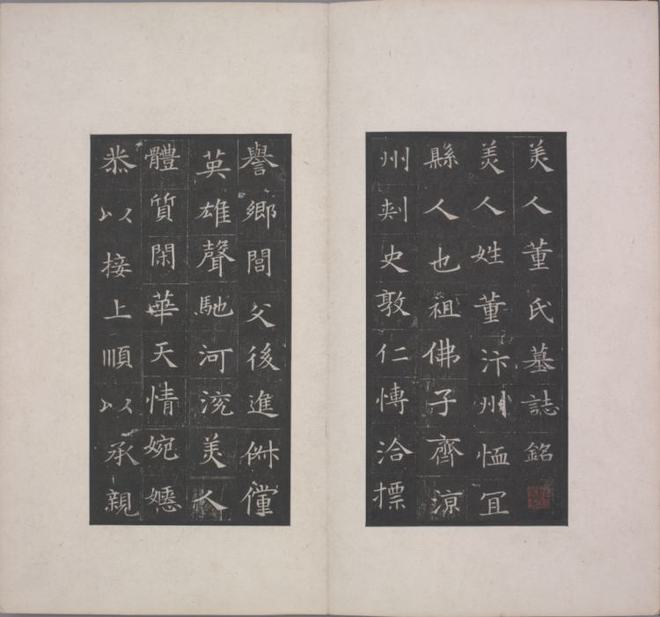 美人董氏墓誌銘
美人姓董汴州恤冝
縣人也祖佛子齊涼
州刾史敦仁愽洽摽
譽鄉閭父後進俶儻
英雄聲馳河浣美人
體質閑華天情婉嫕
恭以接上順以承親